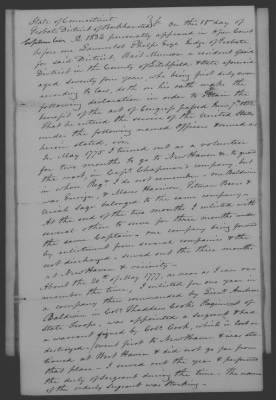 State of Connecticut
Probate District of Barkhamsted } ss. On this 15 day of
A.D. 1832 personally appeared in open Court
before me Lancelot Phelps Esqr Judge of Probate
for said District a resident of said
District in the County of Litchfield & State aforesaid
aged seventy four years, who being first duly sworn
according to law, doth on his oath make the
following declaration in order to obtain the
benefit of the act of Congress passed June 7th 1832.
That he entered the service of the United States
under the following named Officers & served as
herein stated, viz.
In May 1775 I turned out as a volunteer
for two months to go to New Haven & to guard
the coast, in Capt Chapman's company but
in whose Regt I do not remember. one Baldwin
was Ensign, & Moses Harrison, Peterson Rose &
Uriah Sage belonged to the same company
At the end of the two months I enlisted with
several others to serve for three months under
the same Captain one company being formed
by enlistment from several companies & the
not discharged & served out the three months
at New Haven & vicinity
About the 20th of May 1777, as near as I can re-
member the time, I enlisted for one year in
a company then commanded by Lieut
Baldwin in Col. Thaddeus Cooks Regiment of
State Troops, was appointed a Sergeant & had
a warrant signed by Col. Cook, which is lost or
destroyed. Went first to New Haven & was sta-
tioned at West Haven & did not go far from
that place. I served out the year & performed
the duty of Sergeant during the time. The name
of the orderly Sergeant was